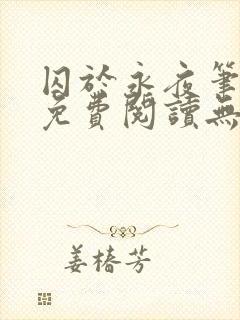 囚於永夜筆
免費閱讀無
姜椿芳